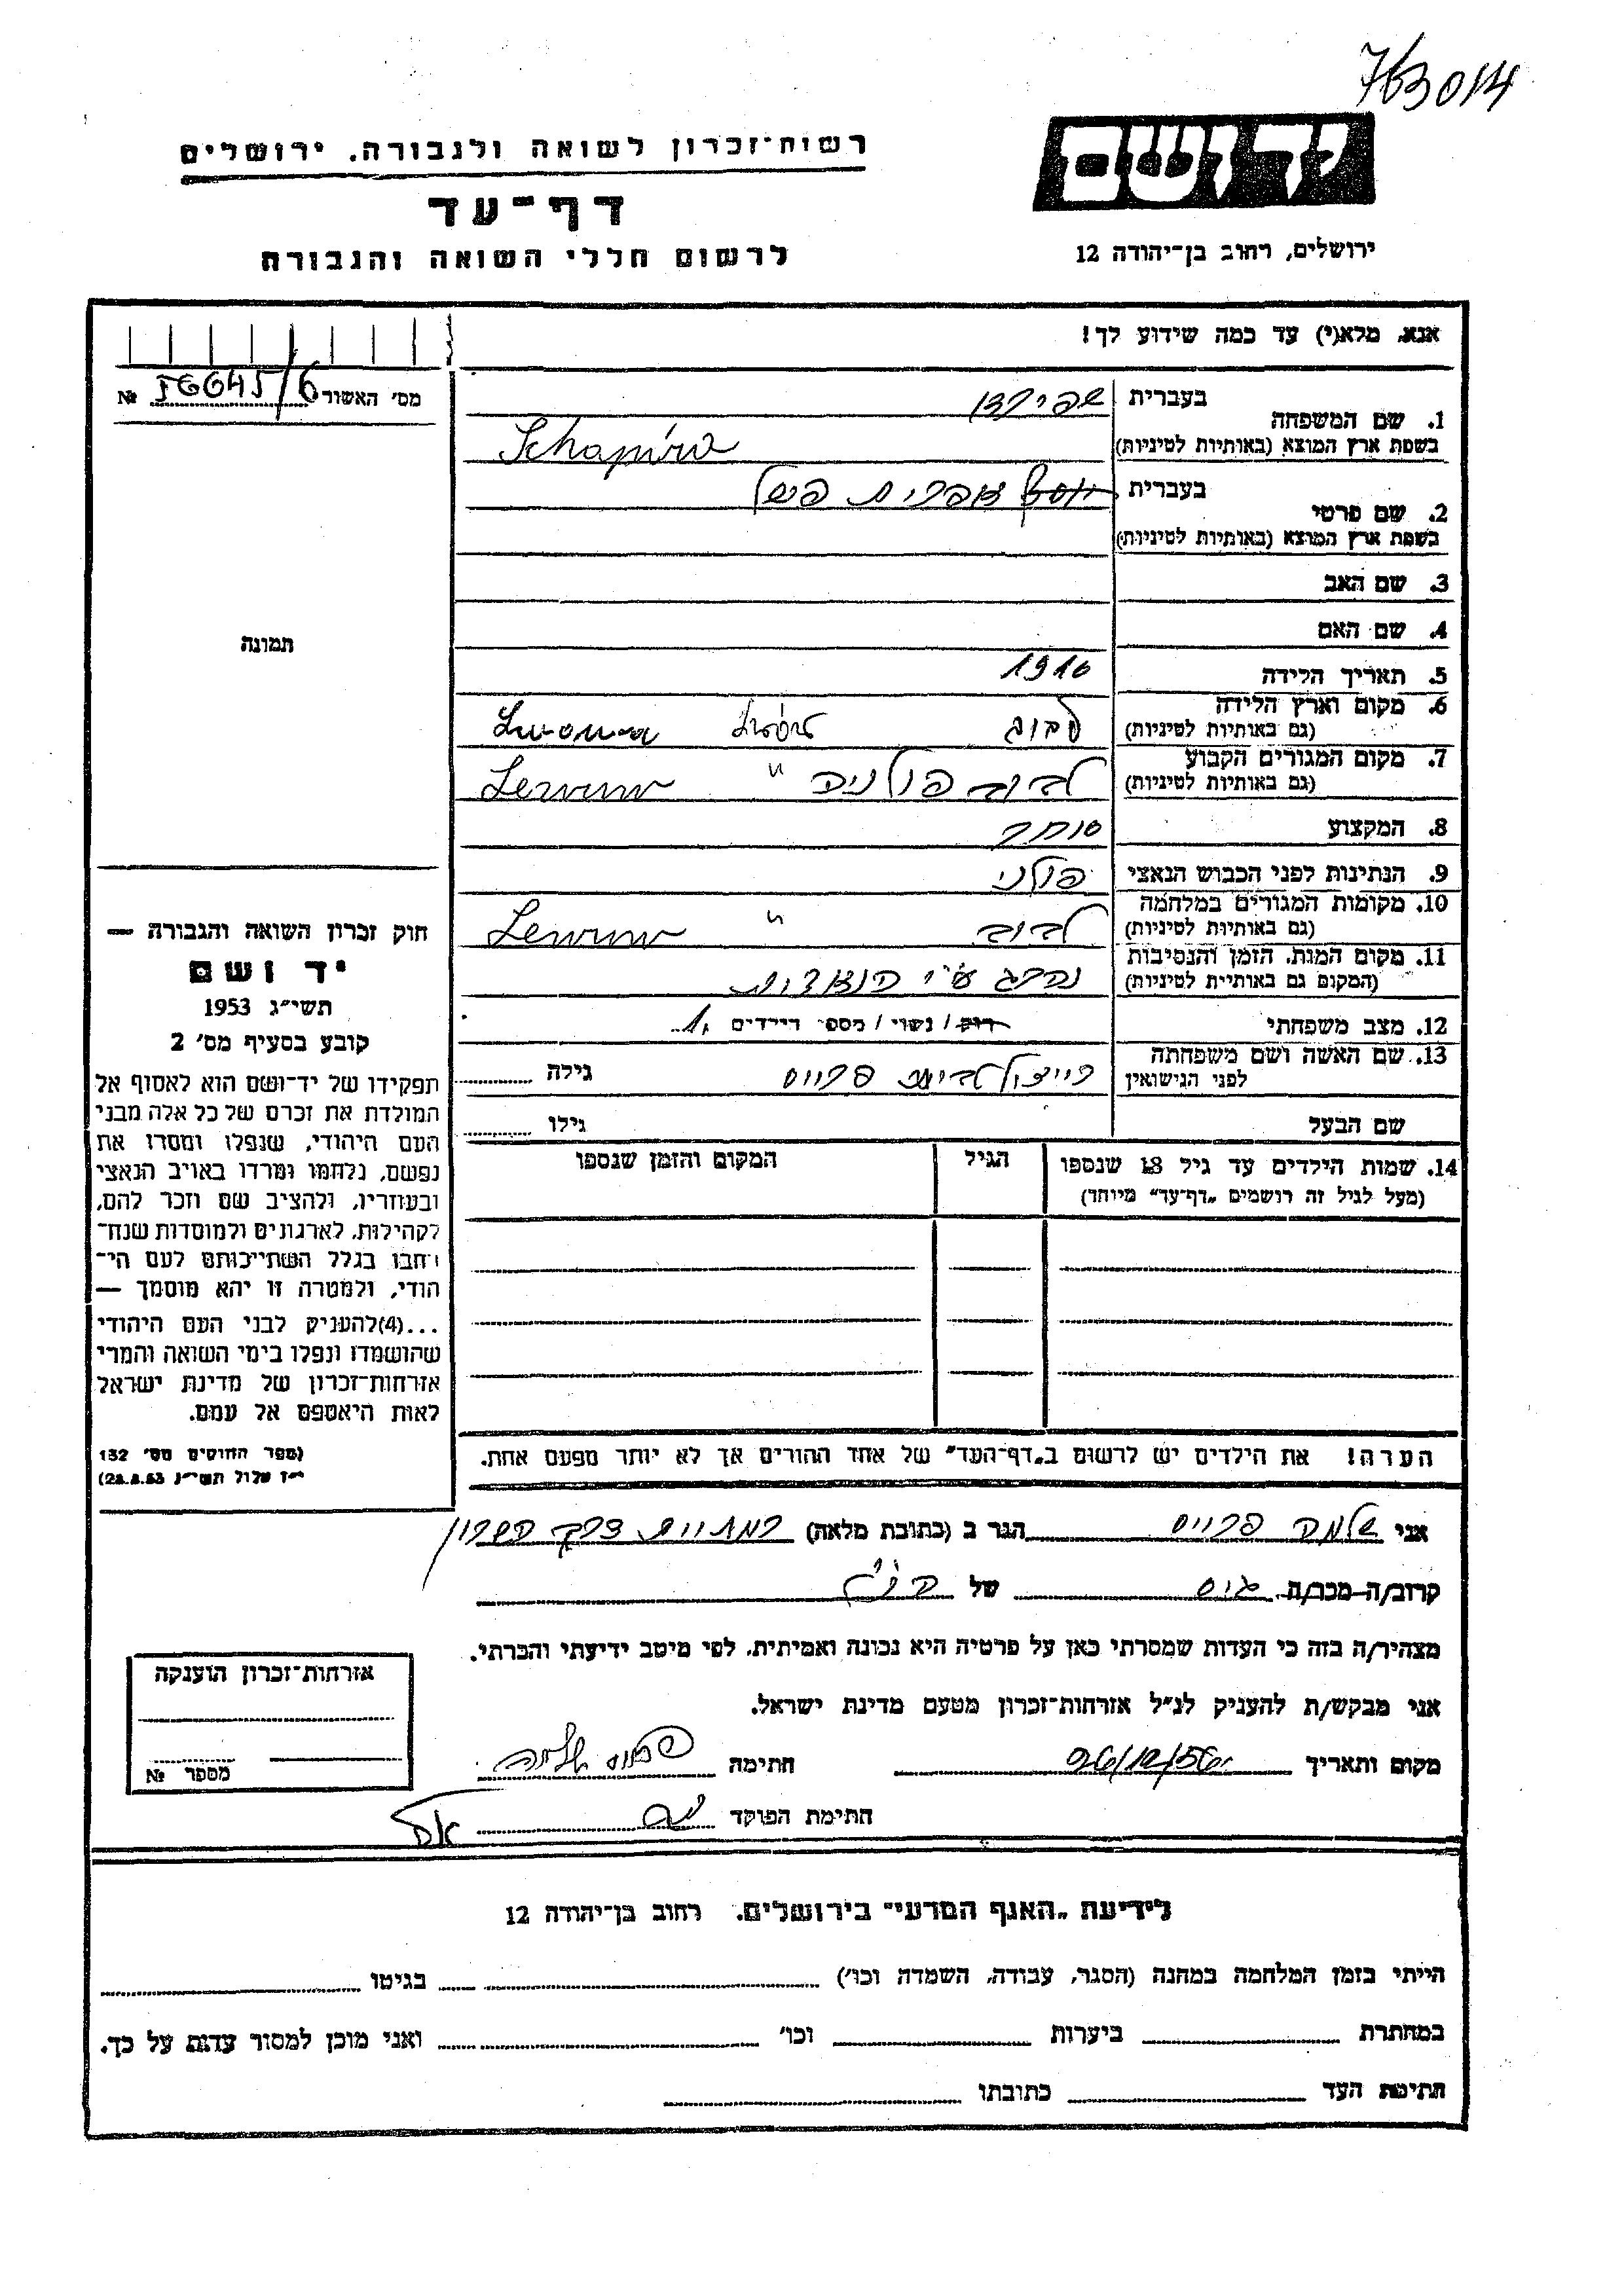 763014
יד ושם
ירושלים, רחוב בן־יהודה 12
רשות־זכרון לשואה ולגבורה. ירושלים
דף־עד
לרשום חללי השואה והגבורה
אנא, מלא(י) עד כמה שידוע לך!
מס' האשור №
1. שם המשפחה
בעברית שפירא
בשפת ארץ המוצא (באותיות לטיניות) Schapira
2. שם פרטי
בעברית
בשפת ארץ המוצא (באותיות לטיניות)
3. שם האב
4. שם האם
5. תאריך הלידה 1910
6. מקום וארץ הלידה לבוב
(גם באותיות לטיניות)
7. מקום המגורים הקבוע לבוב פולניה "
(גם באותיות לטיניות)
8. המקצוע סוחר
9. הנתינות לפני הכבוש הנאצי פולני
10. מקומות המגורים במלחמה לבוב "
(גם באותיות לטיניות)
11. מקום המות, הזמן והנסיבות נהרג ע"י
(המקום גם באותיית לטיניות)
12. מצב משפחתי רוק / נשוי / מספר הילדים 1.
13. שם האשה ושם משפחתה
לפני הנישואין גילה
שם הבעל גילו
14. שמות הילדים עד גיל 18 שנספו הגיל המקום והזמן שנספו
(מעל לגיל זה רושמים „דף־עד" מיוחד)
הערה! את הילדים יש לרשום ב„דף־העד" של אחד ההורים אך לא יותר מפעם אחת.
תמונה
חוק זכרון השואה והגבורה —
יד ושם
תשי"ג 1953
קובע בסעיף מס' 2
תפקידו של יד־ושם הוא לאסוף אל
המולדת את זכרם של כל אלה מבני
העם היהודי, שנפלו ומסרו את
נפשם, נלחמו ומרדו באויב הנאצי
ובעוזריו, ולהציב שם וזכר להם,
לקהילות, לארגונים ולמוסדות שנח־
רבו בגלל השתייכותם לעם הי־
הודי, ולמטרה זו יהא מוסמך —
...(4)להעניק לבני העם היהודי
שהושמדו ונפלו בימי השואה והמרי
אזרחות־זכרון של מדינת ישראל
לאות היאספם אל עמם.
(ספר החוקים מס' 132
י"ז אלול תשי"ג 28.8.53)
אני שלמה הגר ב (כתובת מלאה) השרון
קרוב/ה מכר/ה גיס של הנ"ל
מצהיר/ה בזה כי העדות שמסרתי כאן על פרטיה היא נכונה ואמיתית, לפי מיטב ידיעתי והכרתי.
אני מבקש/ת להעניק לנ"ל אזרחות־זכרון מטעם מדינת ישראל.
מקום ותאריך 26/12/56 חתימה
חתימת הפוקד
אזרחות־זכרון הוענקה
מספר №
לידיעת „האגף המדעי" בירושלים. רחוב בן־יהודה 12
הייתי בזמן המלחמה במחנה (הסגר, עבודה, השמדה וכו') בגיטו
במחתרת ביערות וכו' ואני מוכן למסור עדות על כך.
חתימת העד כתובתו